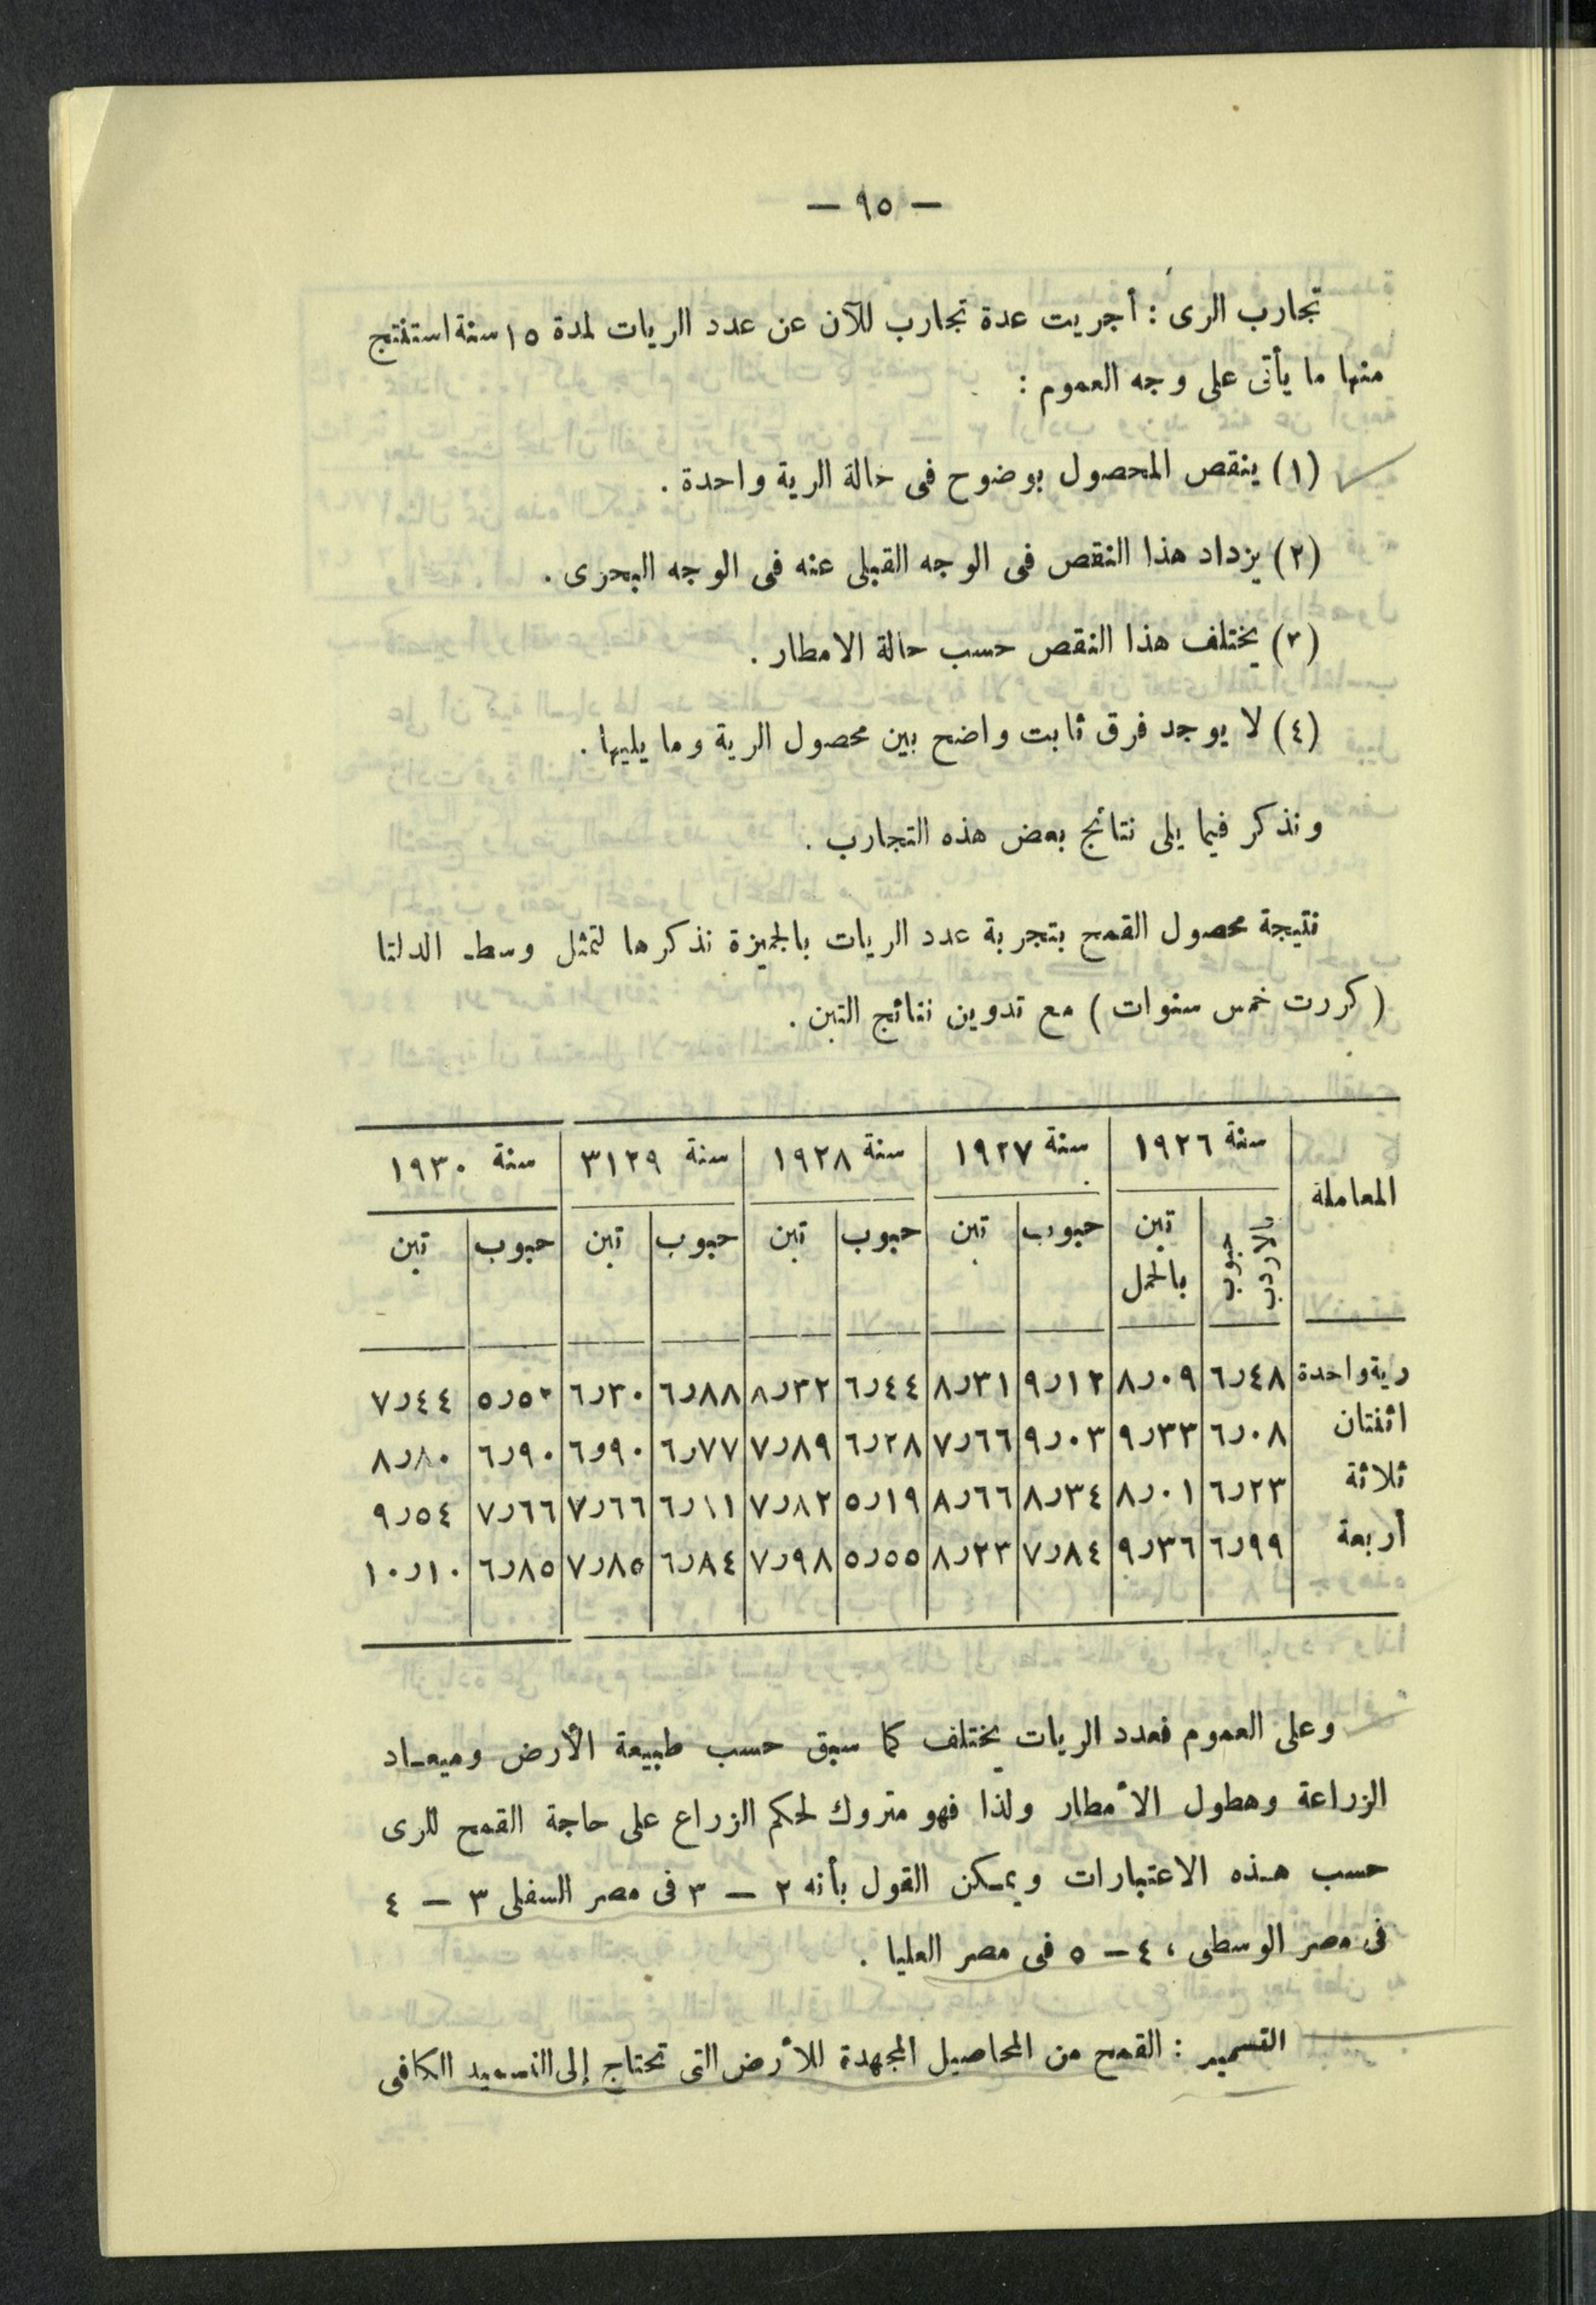 — ٩٥ —
تجارب الرى : أجريت عدة تجارب للآن عن عدد الريات لمدة ١٥ سنة استنتج
منها ما يأتى على وجه العموم :
(١) ينقص المحصول بوضوح فى حالة الرية واحدة .
(٢) يزداد هذا النقص فى الوجه القبلى عنه فى الوجه البحرى .
(٣) يختلف هذا النقص حسب حالة الامطار .
(٤) لا يوجد فرق ثابت واضح بين محصول الرية وما يليها .
ونذكر فيما يلى نتائج بعض هذه التجارب .
نتيجة محصول القمح بتجربة عدد الريات بالجميزة نذكرها لتمثل وسط الدلتا
( كررت خمس سنوات ) مع تدوين نتائج التبن .
المعاملة سنة ١٩٢٦ سنة ١٩٢٧ سنة ١٩٢٨ سنة ٣١٢٩ سنة ١٩٣٠
حبوب بالاردب تبن بالحمل حبوب تبن حبوب تبن حبوب تبن حبوب تبن
رية واحدة ٦٫٤٨ ٨٫٠٩ ٩٫١٢ ٨٫٣١ ٦٫٤٤ ٨٫٣٢ ٦٫٨٨ ٦٫٣٠ ٥٫٥٢ ٧٫٤٤
اثنتان ٦٫٠٨ ٩٫٣٣ ٩٫٠٣ ٧٫٦٦ ٦٫٢٨ ٧٫٨٩ ٦٫٧٧ ٦٫٩٠ ٦٫٩٠ ٨٫٨٠
ثلاثة ٦٫٢٣ ٨٫٠١ ٨٫٣٤ ٨٫٦٦ ٥٫١٩ ٧٫٨٢ ٦٫١١ ٧٫٦٦ ٧٫٦٦ ٩٫٥٤
أربعة ٦٫٩٩ ٩٫٣٦ ٧٫٨٤ ٨٫٢٣ ٥٫٥٥ ٧٫٩٨ ٦٫٨٤ ٧٫٨٥ ٦٫٨٥ ١٠٫١٠
وعلى العموم فعدد الريات يختلف كما سبق حسب طبيعة الأرض وميعاد
الزراعة وهطول الأمطار ولذا فهو متروك لحكم الزراع على حاجة القمح للرى
حسب هذه الاعتبارات ويمكن القول بأنه ٢ — ٣ فى مصر السفلى ٣ — ٤
فى مصر الوسطى ، ٤ — ٥ فى مصر العليا .
التسميد : القمح من المحاصيل المجهدة للأرض التى تحتاج إلى التسميد الكافى